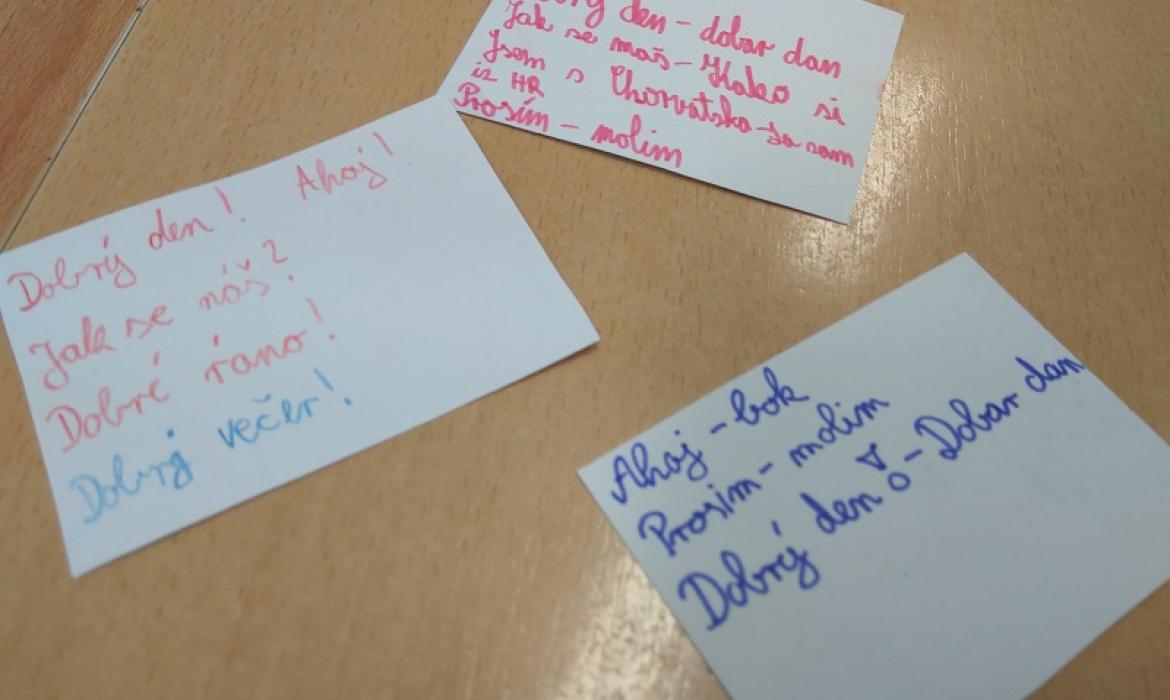 den - dobar dan
Jak se maš - Kako si
Jsem s Chorvatska - Ja sam
iz HR
Prosím - molim
Dobrý den! Ahoj!
Jak se náš?
Dobré ráno!
Dobrý večer!
Ahoj - bok
Prosim - molim
Dobrý den - Dobar dan